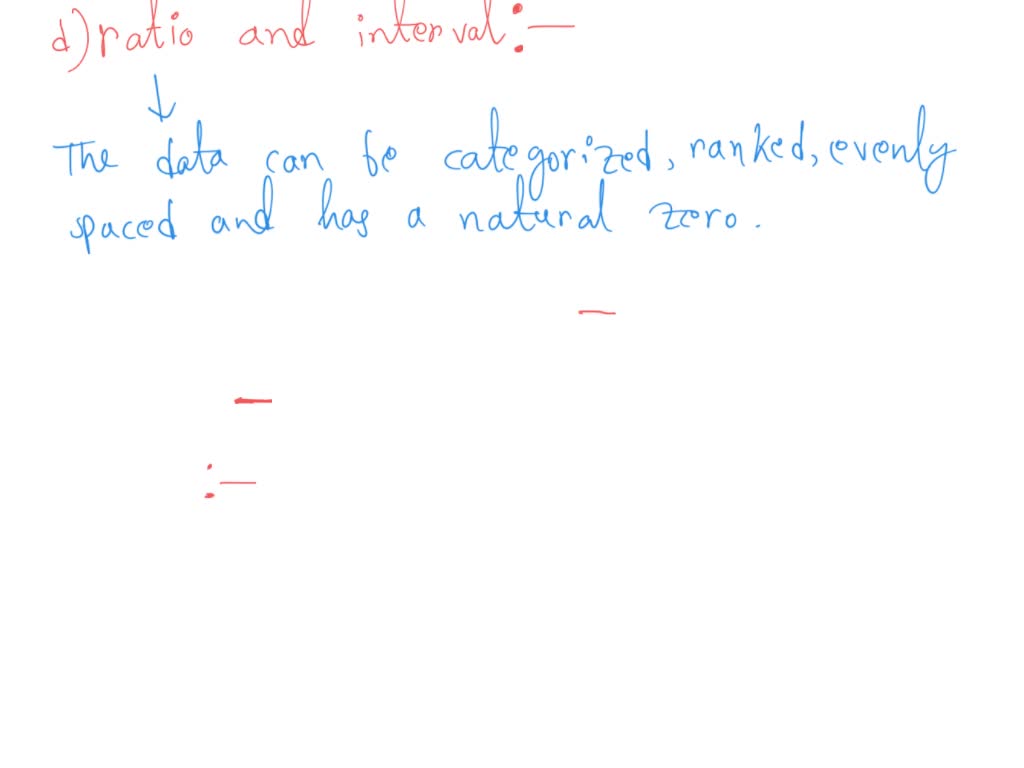 d) ratio and interval :—
↓
The data can be categorized, ranked, evenly
spaced and has a natural zero.
—
—
:—